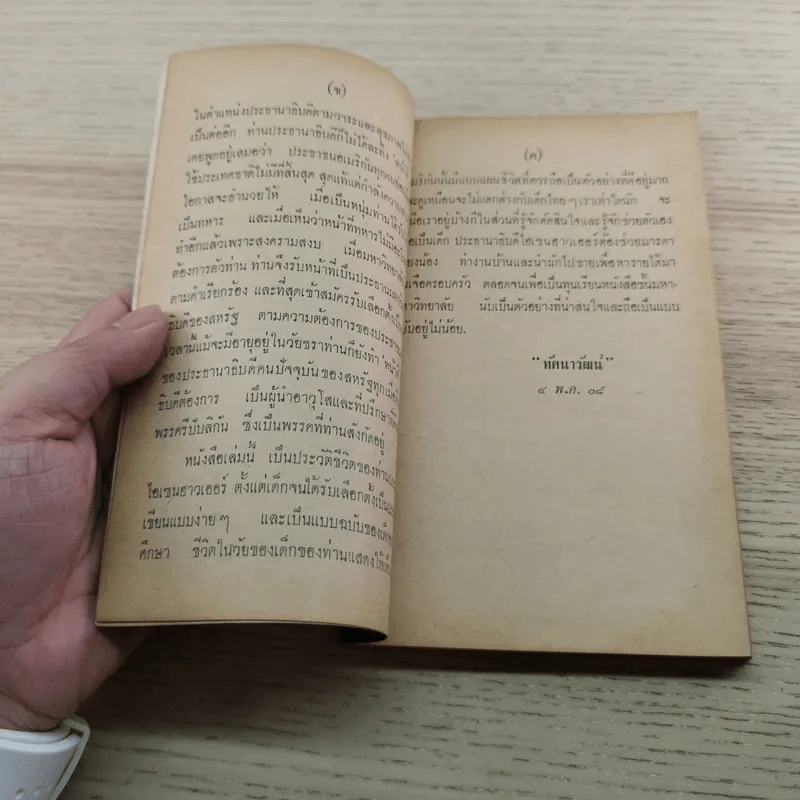 (ข)
ในตำแหน่งประธานาธิบดีตามวาระและสุขภาพ
เป็นต่ออีก ท่านประธานาธิบดีก็ไม่ได้ละทิ้ง
เคยพูดอยู่เสมอว่า ประชาชนอเมริกันทุกคน
ใช้ประเทศชาติไม่มีที่สิ้นสุด สุดแท้แต่กำลังความ
โอกาสจะอำนวยให้ เมื่อเป็นหนุ่มท่านได้
เป็นทหาร และเมื่อเห็นว่าหน้าที่ทหารไม่มี
ทำอีกแล้วเพราะสงครามสงบ เมื่อมหาวิทยา
ต้องการตัวท่าน ท่านจึงรับหน้าที่เป็นประธานมหา
ตามคำเรียกร้อง และที่สุดเข้าสมัครรับเลือกตั้งเป็น
ธิบดีของสหรัฐ ตามความต้องการของประชา
เวลานี้แม้จะมีอายุอยู่ในวัยชราท่านก็ยังทำ
ของประธานาธิบดีคนปัจจุบันของสหรัฐทุกเมื่อ
ธิบดีต้องการ เป็นผู้นำอาวุโสและที่ปรึกษา
พรรครีปับลิกัน ซึ่งเป็นพรรคที่ท่านสังกัดอยู่
หนังสือเล่มนี้ เป็นประวัติชีวิตของท่าน
ไอเซนฮาวเออร์ ตั้งแต่เด็กจนได้รับเลือกตั้งเป็น
เขียนแบบง่ายๆ และเป็นแบบฉบับของเด็ก
ศึกษา ชีวิตในวัยของเด็กของท่านแสดงให้เห็น
(ค)
มริกันนั้นมีแบบแผนชีวิตที่ควรถือเป็นตัวอย่างที่ดีอยู่มาก
ะดูเหมือนจะไม่แตกต่างกับเด็กไทยๆเราเท่าใดนัก จะ
อเราอยู่บ้างก็ในส่วนที่รู้จักตัดสินใจและรู้จักช่วยตัวเอง
อเป็นเด็ก ประธานาธิบดีไอเซนฮาวเออร์ต้องช่วยมารดา
ยงน้อง ทำงานบ้านและนำผักไปขายเพื่อหารายได้มา
เจือครอบครัว ตลอดจนเพื่อเป็นทุนเรียนหนังสือชั้นมหา-
าวิทยาลัย นับเป็นตัวอย่างที่น่าสนใจและถือเป็นแบบ
บับอยู่ไม่น้อย.
"ทัศนาวัฒน์"
๔ พ.ค. ๐๘